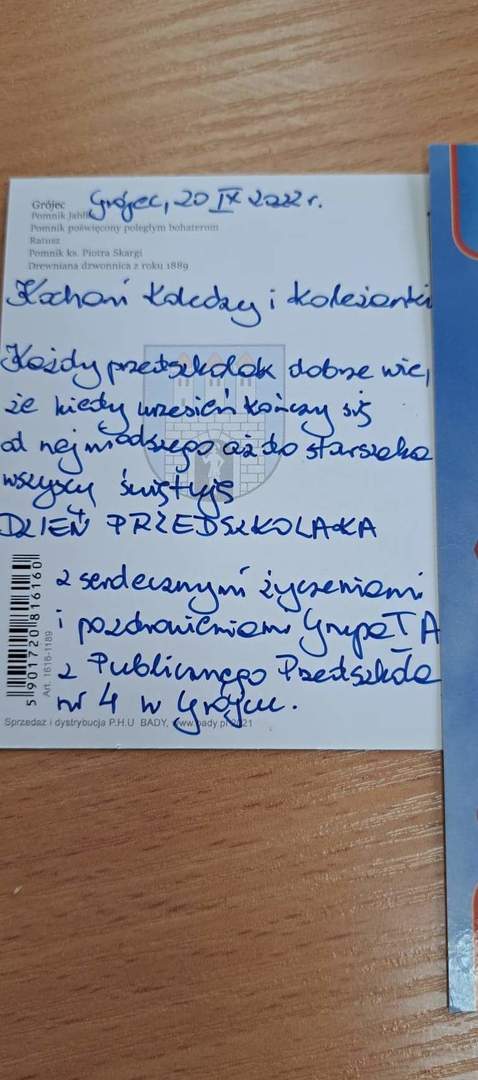 Grójec
Grójec, 20 IX 2022 r.
Pomnik Jabł
Pomnik poświęcony poległym bohaterom
Ratusz
Pomnik ks. Piotra Skargi
Drewniana dzwonnica z roku 1889
Kochani Koledzy i Koleżanki
Każdy przedszkolak dobrze wie,
że kiedy wrzesień kończy się
od najmłodszego aż do starszaka
wszyscy świętują
DZIEŃ PRZEDSZKOLAKA
z serdecznymi życzeniami
i pozdrowieniami Grupa I A
z Publicznego Przedszkola
nr 4 w Grójcu.
5 901720 816160
Art. 1616-1189
Sprzedaż i dystrybucja P.H.U BADY, www.bady.pl 2021